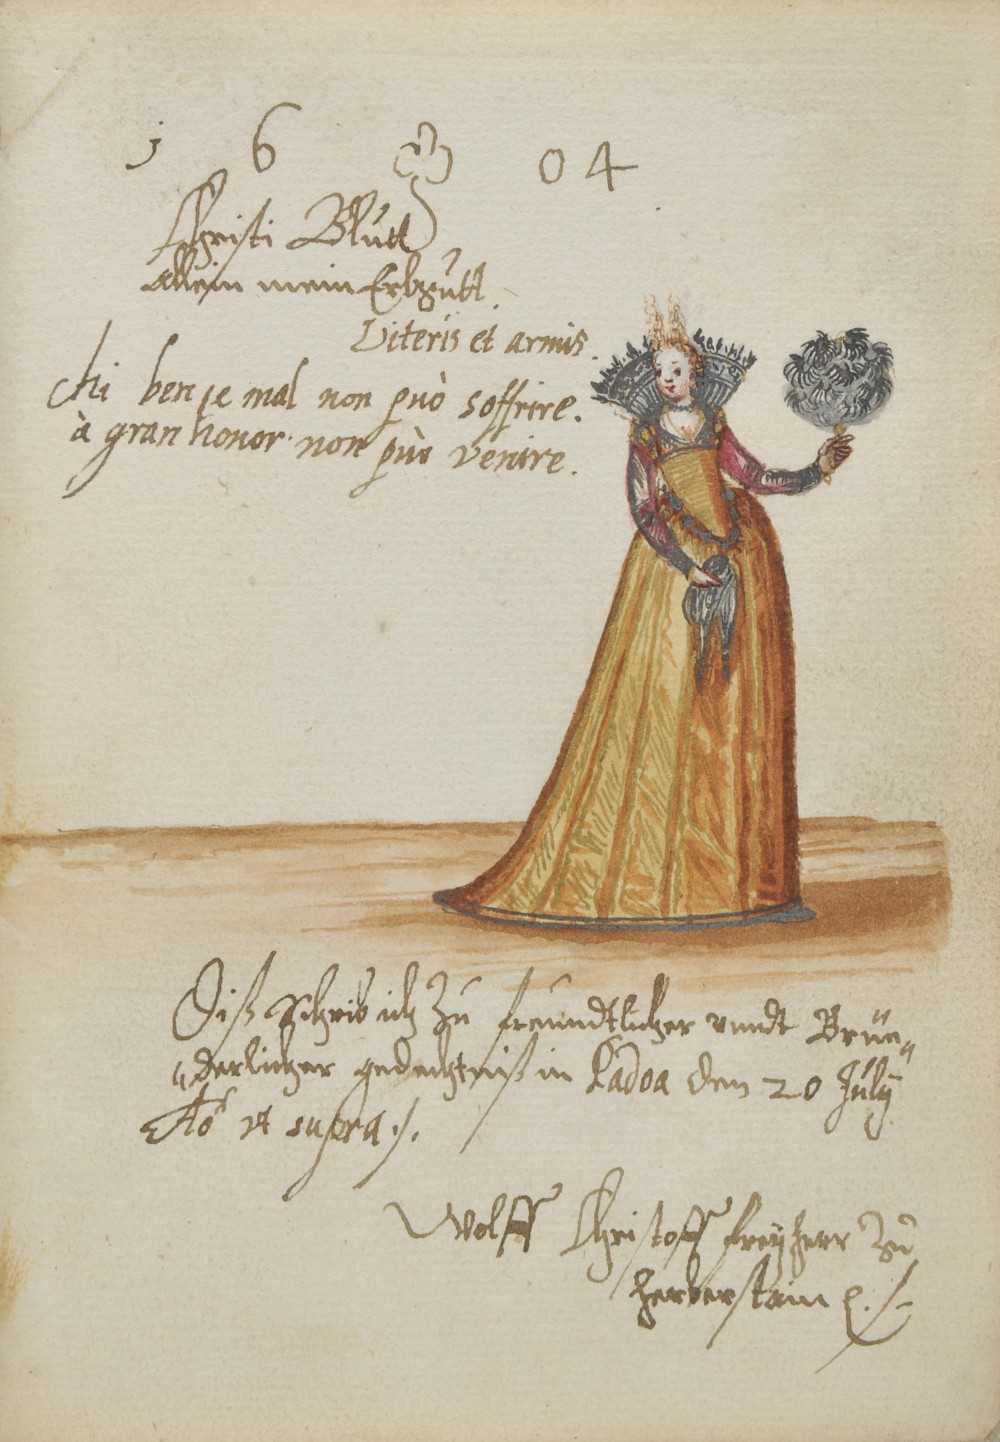 1 6 04
Christi Blutt
allein mein Erbgutt
Literis et armis.
Chi ben e mal non può soffrire.
à gran honor non può venire.
Diß schrib ich zu freundtlicher vnndt Brüe„
„derlicher gedechtniß in Padoa den 20 July
Ao vt supra ./.
Wolff Christoff freyherr zu
herberstain